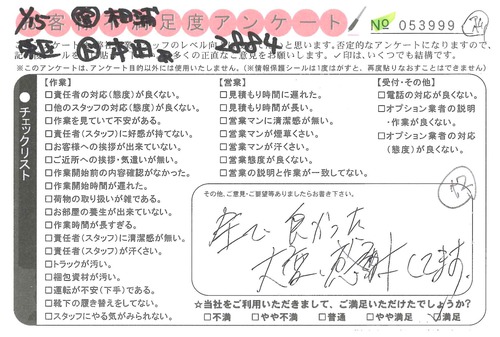 お客様不満足度アンケート
№ 053999
1/15 営 相浦
2884
このアンケートは、アンケート目的以外には使用いたしません。（※情報保護シールは1度はがすと、再度貼りなおすことはできません）
チェックリスト
【作業】
□責任者の対応（態度）が良くない。
□他のスタッフの対応（態度）が良くない。
□作業を見ていて不安がある。
□責任者（スタッフ）に好感が持てない。
□お客様への挨拶が出来ていない。
□ご近所への挨拶・気遣いが無い。
□作業開始前の内容確認がなかった。
□作業開始時間が遅れた。
□荷物の取り扱いが雑である。
□お部屋の養生が出来ていない。
□作業時間が長すぎる。
□責任者（スタッフ）に清潔感が無い。
□責任者（スタッフ）が汗くさい。
□トラックが汚い。
□梱包資材が汚い。
□運転が不安（下手）である。
□靴下の履き替えをしてない。
□スタッフにやる気がみられない。
【営業】
□見積もり時間に遅れた。
□見積もり時間が長い。
□営業マンに清潔感が無い。
□営業マンが煙草くさい。
□営業マンが汗くさい。
□営業態度が良くない。
□営業の説明と作業が一致してない。
【受付・その他】
□電話の対応が良くない。
□オプション業者の説明・作業が良くない。
□オプション業者の対応（態度）が良くない。
その他、ご意見・ご要望等ありましたらお書き下さい。
全て良かった
大変、感謝してます。
☆当社をご利用いただきまして、ご満足いただけたでしょうか？
□不満 □やや不満 □普通 □やや満足 □満足